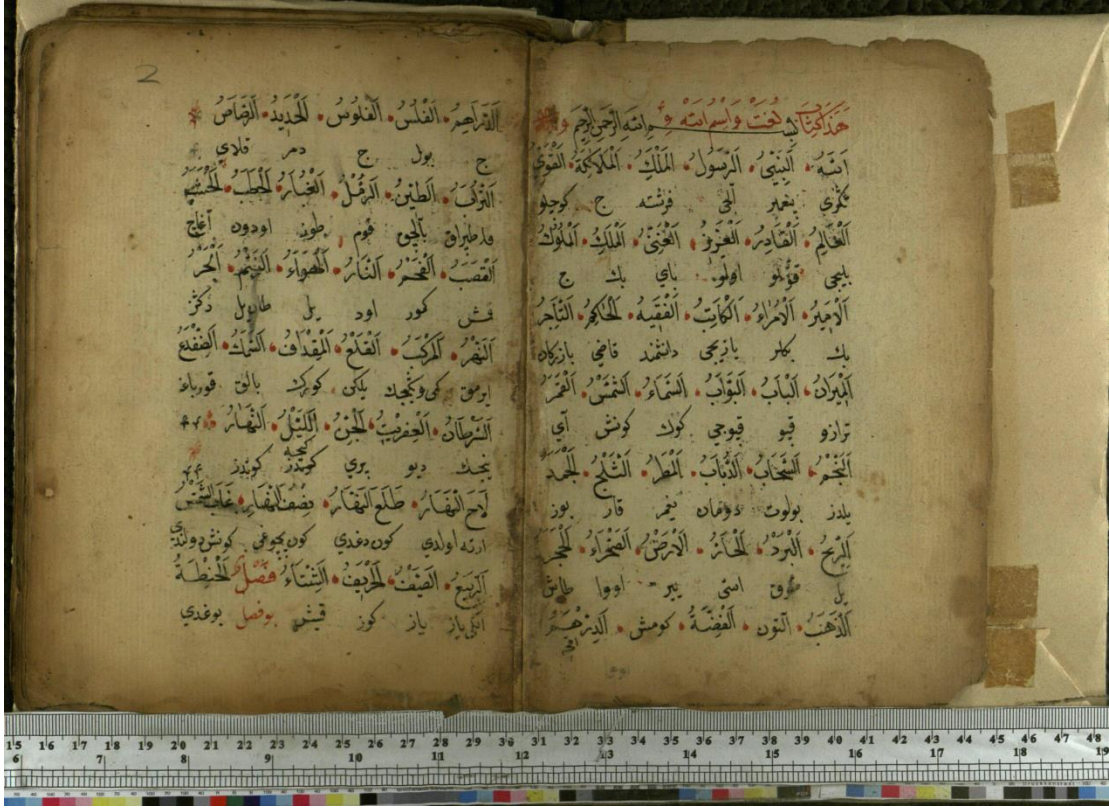 هَذَا كِتَابُ لُغَتْ وَاسْمُ اللّٰه بِسْمِ اللّٰهِ الرَّحْمٰنِ الرَّحِيمِ
اَللّٰهُ اَلنَّبِيُّ اَلرَّسُولُ اَلْمَلَكُ اَلْمَلَائِكَةُ اَلْقَوِيُّ
تكري پيغمبر ايلچي فرشته ج كوجلو
اَلْعَالِمُ اَلْقَادِرُ اَلْعَزِيزُ اَلْغَنِيُّ اَلْمَلِكُ اَلْمُلُوكُ
بليجي قوتلو اولو باي بك ج
اَلْاَمِيرُ اَلْاُمَرَاءُ اَلْكَاتِبُ اَلْفَقِيهُ اَلْحَاكِمُ اَلتَّاجِرُ
بك بكلر يازيجي دانشمند قاضي بازركان
اَلْمِيزَانُ اَلْبَابُ اَلْبَوَّابُ اَلسَّمَاءُ اَلشَّمْسُ اَلْقَمَرُ
ترازو قپو قپوجي كوك كونش آي
اَلنَّجْمُ اَلسَّحَابُ اَلضَّبَابُ اَلْمَطَرُ اَلثَّلْجُ اَلْجَمَدُ
يلدز بولوت دومان يغمر قار بوز
اَلرِّيحُ اَلْبَرْدُ اَلْحَارُّ اَلْاَرْضُ اَلصَّحْرَاءُ اَلْحَجَرُ
يل صوق اسي يير اووا طاش
اَلذَّهَبُ آلتون اَلْفِضَّةُ كومش اَلدِّرْهَمُ
اقچه
2
اَلدَّرَاهِمُ اَلْفَلْسُ اَلْفُلُوسُ اَلْحَدِيدُ اَلرَّصَاصُ
ج پول ج دمر قلاي
اَلتُّرَابُ اَلطِّينُ اَلرَّمْلُ اَلْغُبَارُ اَلْحَطَبُ اَلْخَشَبُ
طپراق بالچق قوم طوز اودون آغاج
اَلْقَصَبُ اَلْفَحْمُ اَلنَّارُ اَلْهَوَاءُ اَلْيَمُّ اَلْبَحْرُ
قمش كمور اود يل دكز
اَلنَّهْرُ اَلْمَرْكَبُ اَلْقَلْعُ اَلْمِقْدَافُ اَلسَّمَكُ اَلضِّفْدَعُ
ايرمق كمي يلكن كورك بالق قورباغه
اَلسَّرَطَانُ اَلْعِفْرِيتُ اَلْجِنُّ اَللَّيْلُ اَلنَّهَارُ
ينكج ديو پري كيجه كوندز كوندز
لَاحَ النَّهَارُ طَلَعَ النَّهَارُ نِصْفُ النَّهَارِ غَابَ الشَّمْسُ
ارته اولدي كون دغدي كون يچوغي كونش دولندي
اَلرَّبِيعُ اَلصَّيْفُ اَلْخَرِيفُ اَلشِّتَاءُ فَصْلٌ اَلْحِنْطَةُ
ياز كوز قيش بو فصل بوغدي